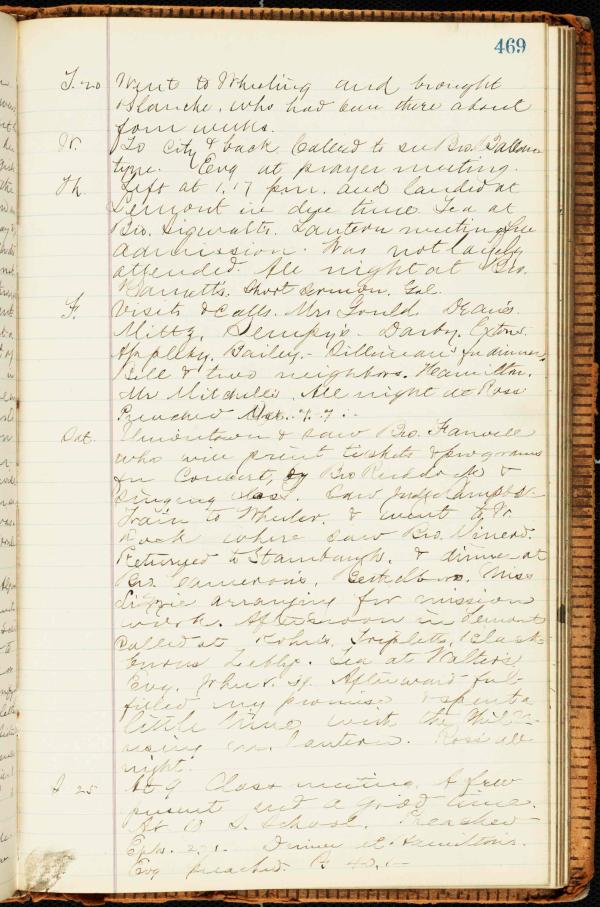 469
T. 20 Went to Wheeling and brought
Blanche, who had been there about
four weeks.
W. To city & back Called to see Bro.
type. Evg at prayer meeting.
Th. Left at 1.17 pm. and landed at
Lemont in due time Tea at
Bro. Sigwalts. Lantern meeting free
admission. Was not largely
attended. All night at Bro.
Barnett's. Short sermon. Gal.
F. Visits & calls. Mrs Gould Dean's
Miltz, Dempsy's - Darby,
Appleby, Bailey, - for dinner,
& two neighbors. Hamilton,
Mr Mitchell's. All night at Ross
Preached Matt. 7.7.
Sat. Uniontown & saw Bro.
who will print tickets & programs
for Concert, by Bro & 
singing class. Saw Judge Campbell
Train to Wheeler, & went to Dr.
where saw Bro.
Returned to Stambaugh, & dinner at
Bro. Cameron's, Miss
Lizzie arranging for mission
work. Afternoon in Lemont
called at Triplett, Black
Tea at Walters
Evg. Afterward ful-
filled my promise & spent a
little time with the
on lantern. Ross all
night.
S 25 At 9 Class meeting. A few
present and a good time.
At 10 S. School. Preached
Eph. 2.1. Dinner at Hamilton's.
Evg preached. Ps 40.1-